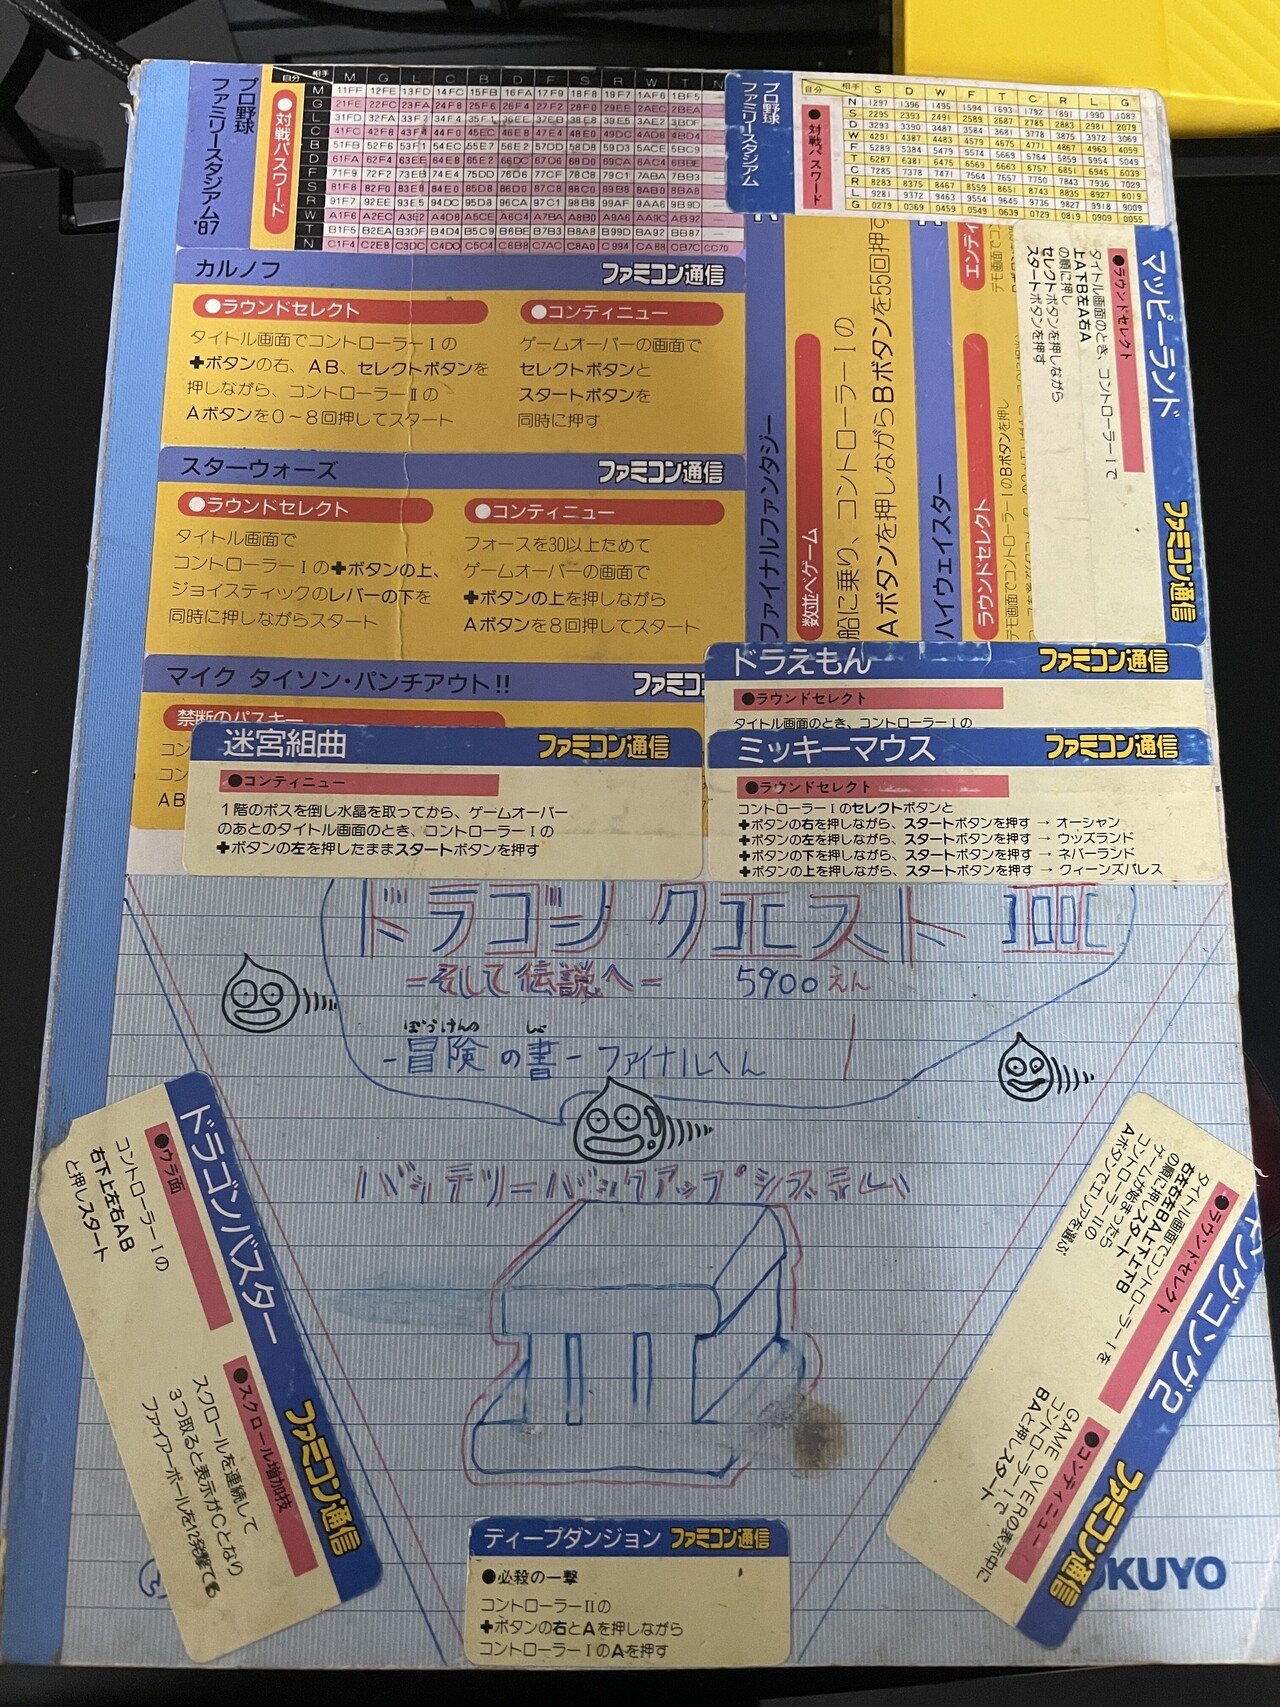 プロ野球
ファミリースタジアム'87
●対戦パスワード
自分 相手 M G L C B D F S R W T N
M 11FF 12FE 13FD 14FC 15FB 16FA 17F9 18F8 19F7 1AF6 1BF5
G 21FE 22FC 23FA 24F8 25F6 26F4 27F2 28F0 29EE 2AEC 2BEA
L 31FD 32FA
C 41FC 42F8
B 51FB 52F6 53F1 54EC 55E7 56E2 57DD 58D8 59D3 5ACE 5BC9
D 61FA 62F4 63EE 64E8 65E2 66DC 67D6 68D0 69CA 6AC4 6BBE
F 71F9 72F2 73EB 74E4 75DD 76D6 77CF 78C8 79C1 7ABA 7BB3
S 81F8 82F0 83E8 84E0 85D8 86D0 87C8 88C0 89B8 8AB0 8BA8
R 91F7 92EE 93E5 94DC 95D3 96CA 97C1 98B8 99AF 9AA6 9B9D
W A1F6 A2EC A3E2 A4D8 A5CE A6C4 A7BA A8B0 A9A6 AA9C AB92
T B1F5 B2EA B3DF B4D4 B5C9 B6BE B7B3 B8A8 B99D BA92 BB87
N C1F4 C2E8 C3DC C4D0 C5C4 C6B8 C7AC C8A0 C994 CA88 CB7C CC70
プロ野球
ファミリースタジアム
●対戦パスワード
自分 相手 S D W F T C R L G
N 1297 1396 1495 1594 1693 1792 1891 1990 1089
S 2295 2393 2491 2589 2687 2785 2883 2981 2079
D 3293 3390 3487 3584 3681 3778 3875 3972 3069
W 4291 4387 4483 4579 4675 4771 4867 4963 4059
F 5289 5384 5479 5574 5669 5764 5859 5954 5049
T 6287 6381 6475 6569 6663 6757 6851 6945 6039
C 7285 7378 7471 7564 7657 7750 7843 7936 7029
R 8283 8375 8467 8559 8651 8743 8835 8927 8019
L 9281 9372 9463 9554 9645 9736 9827 9918 9009
G 0279 0369 0459 0549 0639 0729 0819 0909 0055
カルノフ ファミコン通信
●ラウンドセレクト
タイトル画面でコントローラーⅠの
✚ボタンの右、AB、セレクトボタンを
押しながら、コントローラーⅡの
Aボタンを0～8回押してスタート
●コンティニュー
ゲームオーバーの画面で
セレクトボタンと
スタートボタンを
同時に押す
スターウォーズ ファミコン通信
●ラウンドセレクト
タイトル画面で
コントローラーⅠの✚ボタンの上、
ジョイスティックのレバーの下を
同時に押しながらスタート
●コンティニュー
フォースを30以上ためて
ゲームオーバーの画面で
✚ボタンの上を押しながら
Aボタンを8回押してスタート
マイク タイソン・パンチアウト!!
ファミコ
禁断のパスキー
コン
コン
AB
ファイナルファンタジー
数並べゲーム
船に乗り、コントローラーⅠの
Aボタンを押しながらBボタンを55回押す
ハイウェイスター
ラウンドセレクト
デモ画面でコントローラーⅠのBボタンを押し
エンディ
デモ画面でコ
マッピーランド ファミコン通信
●ラウンドセレクト
タイトル画面のとき、コントローラーⅠで
上A下B左A右A
の順に押し
セレクトボタンを押しながら
スタートボタンを押す
ドラえもん ファミコン通信
●ラウンドセレクト
タイトル画面のとき、コントローラーⅠの
迷宮組曲 ファミコン通信
●コンティニュー
1階のボスを倒し水晶を取ってから、ゲームオーバー
のあとのタイトル画面のとき、コントローラーⅠの
✚ボタンの左を押したままスタートボタンを押す
ミッキーマウス ファミコン通信
●ラウンドセレクト
コントローラーⅠのセレクトボタンと
✚ボタンの右を押しながら、スタートボタンを押す → オーシャン
✚ボタンの左を押しながら、スタートボタンを押す → ウッズランド
✚ボタンの下を押しながら、スタートボタンを押す → ネバーランド
✚ボタンの上を押しながら、スタートボタンを押す → クィーンズパレス
ドラゴンクエストIII
-そして伝説へ- 5900えん
ぼうけんの しょ
-冒険の書- ファイナルへん
バッテリーバックアップシステム
ドラゴンバスター ファミコン通信
●ウラ面
コントローラーⅠの
右下上左右AB
と押しスタート
●スクロール増加技
スクロールを連続して
3つ取ると表示がCとなり
ファイアーボールを12発撃てる
キングコング2 ファミコン通信
●ラウンドセレクト
タイトル画面でコントローラーⅠを
右左右左BA上下上下B
の順に押しスタート
ゲームが始まったら
コントローラーⅡの
Aボタンでエリアを選ぶ
●コンティニュー
GAME OVERの表示中に
コントローラーⅠで
BAと押しスタート
ディープダンジョン ファミコン通信
●必殺の一撃
コントローラーⅡの
✚ボタンの右とAを押しながら
コントローラーⅠのAを押す
OKUYO